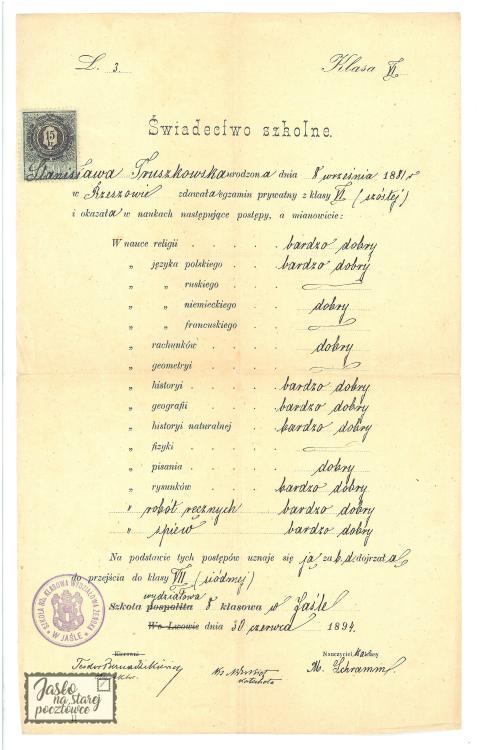 L. 3.
Klasa VI
Świadectwo szkolne.
15
Stanisława Truszkowska urodzona dnia 8 września 1881 r
w Rzeszowie zdawała egzamin prywatny z klasy VI (szóstej)
i okazała w naukach następujące postępy, a mianowicie:
W nauce religii . . . bardzo dobry
„ języka polskiego . . . bardzo dobry
„ „ ruskiego . .
„ „ niemieckiego . . dobry
„ „ francuskiego . .
„ rachunków . . . . dobry
„ geometryi . . . .
„ historyi . . . . bardzo dobry
„ geografii . . . . bardzo dobry
„ historyi naturalnej . . bardzo dobry
„ fizyki . . . .
„ pisania . . . . dobry
„ rysunków . . . . bardzo dobry
„ robót ręcznych . . bardzo dobry
„ śpiew . . . bardzo dobry
Na podstawie tych postępów uznaje się ją za b. dojrzałą
do przejścia do klasy VII (siódmej)
wydziałowa
Szkoła pospolita 8 klasowa w Jaśle
We Lwowie dnia 30 czerwca 1894.
SZKOŁA 8O. KLASOWA WYDZIAŁOWA ŻEŃSKA
W JAŚLE
Kierownik
Nauczyciel
M. Schramm
Jasło
na starej
pocztówce